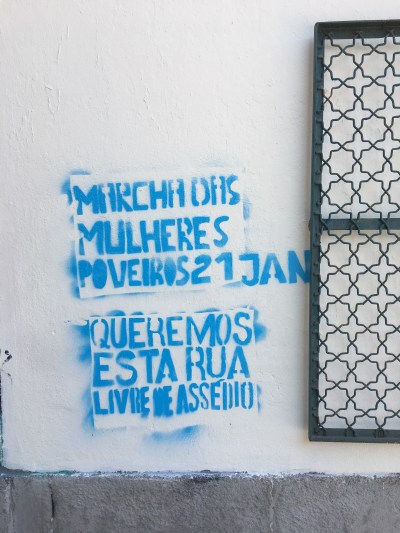 MARCHA DAS
MULHERES
POVEIROS 21 JAN
QUEREMOS
ESTA RUA
LIVRE DE ASSÉDIO